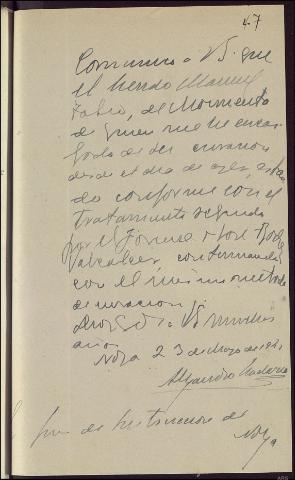 47
Comunico a VS. que
el herido Manuel
de Moimenta
de quien me he encar
gado de su curacion
desde el dia de ayer, estan
do conforme con el
tratamiento seguido
por el Jose
continuando
con el mismo metodo
de curacion
Dios gue. a VS muchos
años
Noya 23 de Mayo de
Alejandro
Sr. Juez de Instruccion de
Noya